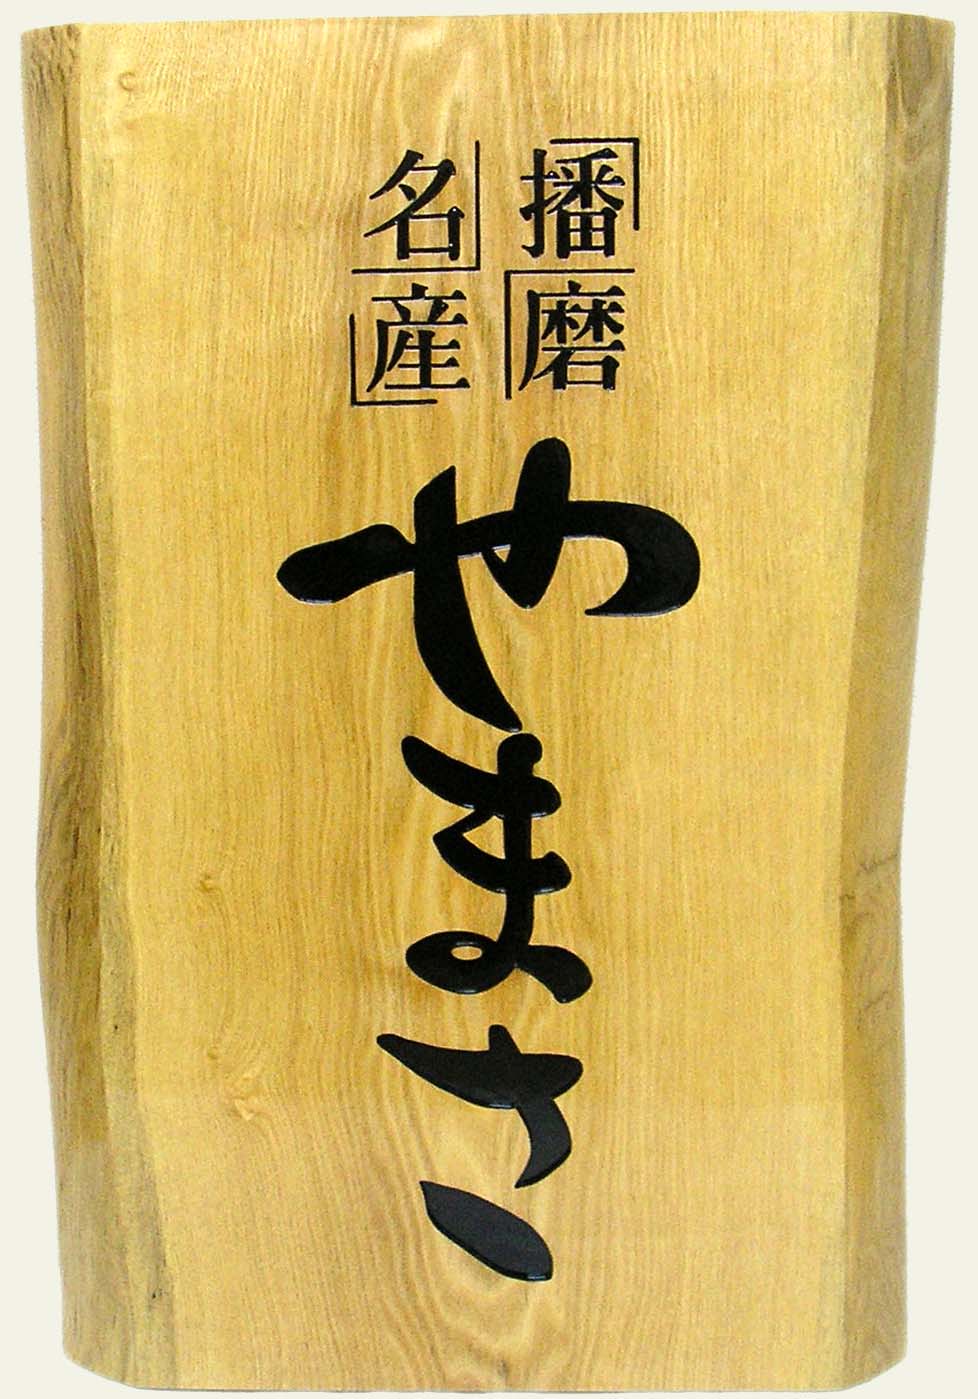 播磨
名産
やまさ